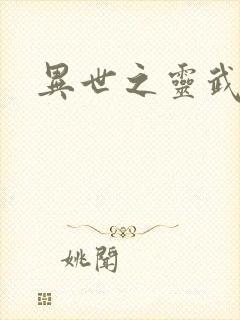 異世之靈武
姚聞